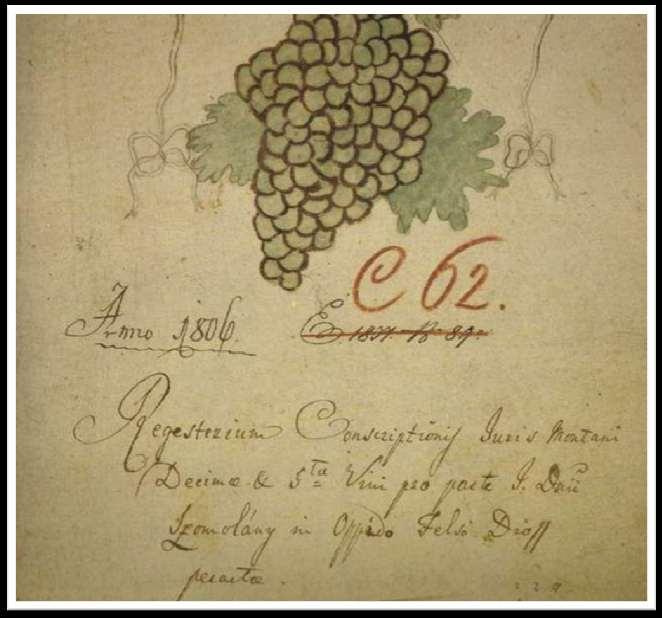 C 62.
Anno 1806.
Regesterium Conscriptionis Juris Montani
Decimæ & 5ta Vini pro parte I. Dnii
Szomolány in Oppido Felső Dioss
peractæ.